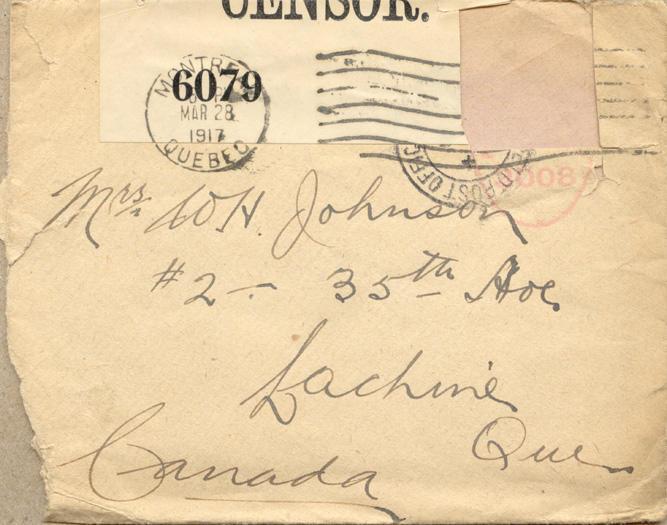 CENSOR.
6079
MONTREAL
MAR 28
1917
QUEBEC
POST OFFIC
Mrs. W H. Johnson
#2 - 35th Ave.
Lachine
Que
Canada